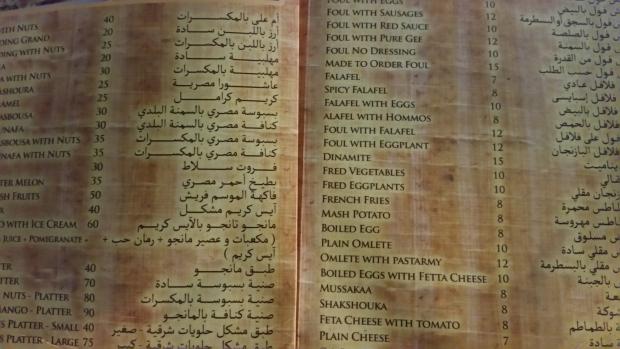 WITH NUTS 40 أم على بالمكسرات
DING GRAND 20 أرز باللبن سادة
DING WITH NUTS 30 أرز باللبن بالمكسرات
20 مهلبية سادة
A WITH NUTS 30 مهلبية بالمكسرات
ASHOURA 25 عاشورا مصرية
AMEL 25 كريم كرامل
ASBOUSA 30 بسبوسة مصري بالسمنة البلدي
UNAFA 30 كنافة مصري بالسمنة البلدي
ASBOUSA WITH NUTS 35 بسبوسة مصري بالمكسرات
UNAFA WITH NUTS 35 كنافة مصري بالمكسرات
30 فروت سلاط
TER MELON 35 بطيخ أحمر مصري
SH FRUITS 50 فاكهة الموسم فريش
X 40 آيس كريم مشكل
O WITH ICE CREAM 60 مانجو تانجو بالآيس كريم
JUICE + POMIGRANATE + ( مكعبات و عصير مانجو + رمان حب +
آيس كريم )
TER 40 طبق مانجو
TTER 70 صنية بسبوسة سادة
NUTS - PLATTER 80 صنية بسبوسة بالمكسرات
MANGO - PLATTER 90 صنية كنافة بالمانجو
TS PLATTER - SMALL 40 طبق مشكل حلويات شرقية - صغير
TS PLATTER - LARGE 75 طبق مشكل حلويات شرقية - كبير
FOUL WITH EGGS 10 فول بالبيض
FOUL WITH SAUSAGES 12 فول بالسجق أو بالبسطرمة
FOUL WITH RED SAUCE 10 فول بالصلصة
FOUL WITH PURE GEF 12 فول بالسمنة
FOUL NO DRESSING 10 فول من القدرة
MADE TO ORDER FOUL 15 فول حسب الطلب
FALAFEL 7 فلافل عادي
SPICY FALAFEL 8 فلافل إسبايسى
FALAFEL WITH EGGS 10 فلافل بالبيض
ALAFEL WITH HOMMOS 8 فلافل بالحمص
FOUL WITH FALAFEL 12 فول على فلافل
FOUL WITH EGGPLANT 12 فول بالبازنجان
DINAMITE 15 ديناميت
FRED VEGETABLES 10
FRED EGGPLANTS 10 نجان مقلي
FRENCH FRIES 8 طس محمرة
MASH POTATO 8 طاطس مهروسة
BOILED EGG 8 مسلوق
PLAIN OMLETE 8 مقلي سادة
OMLETE WITH PASTARMY 12 مقلي بالبسطرمة
BOILED EGGS WITH FETTA CHEESE 10 بالجبنة
MUSSAKAA 8
SHAKSHOUKA 8 شوكة
FETA CHEESE WITH TOMATO 8 بالطماطم
PLAIN CHEESE 7 سادة